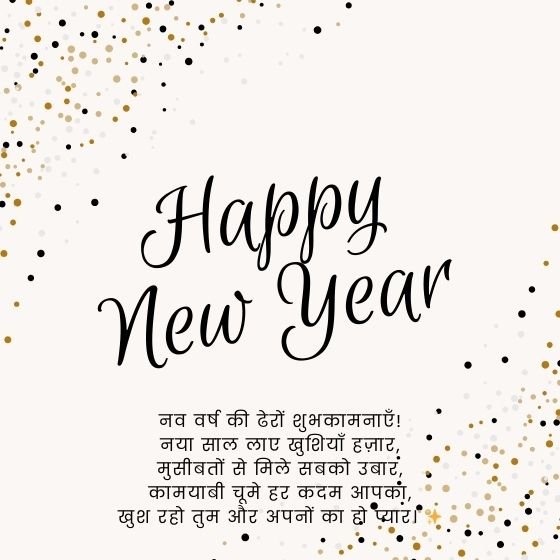 Happy
New Year
नव वर्ष की ढेरों शुभकामनाएँ!
नया साल लाए खुशियाँ हज़ार,
मुसीबतों से मिले सबको उबार,
कामयाबी चूमे हर कदम आपका,
खुश रहो तुम और अपनों का हो प्यार। ✨